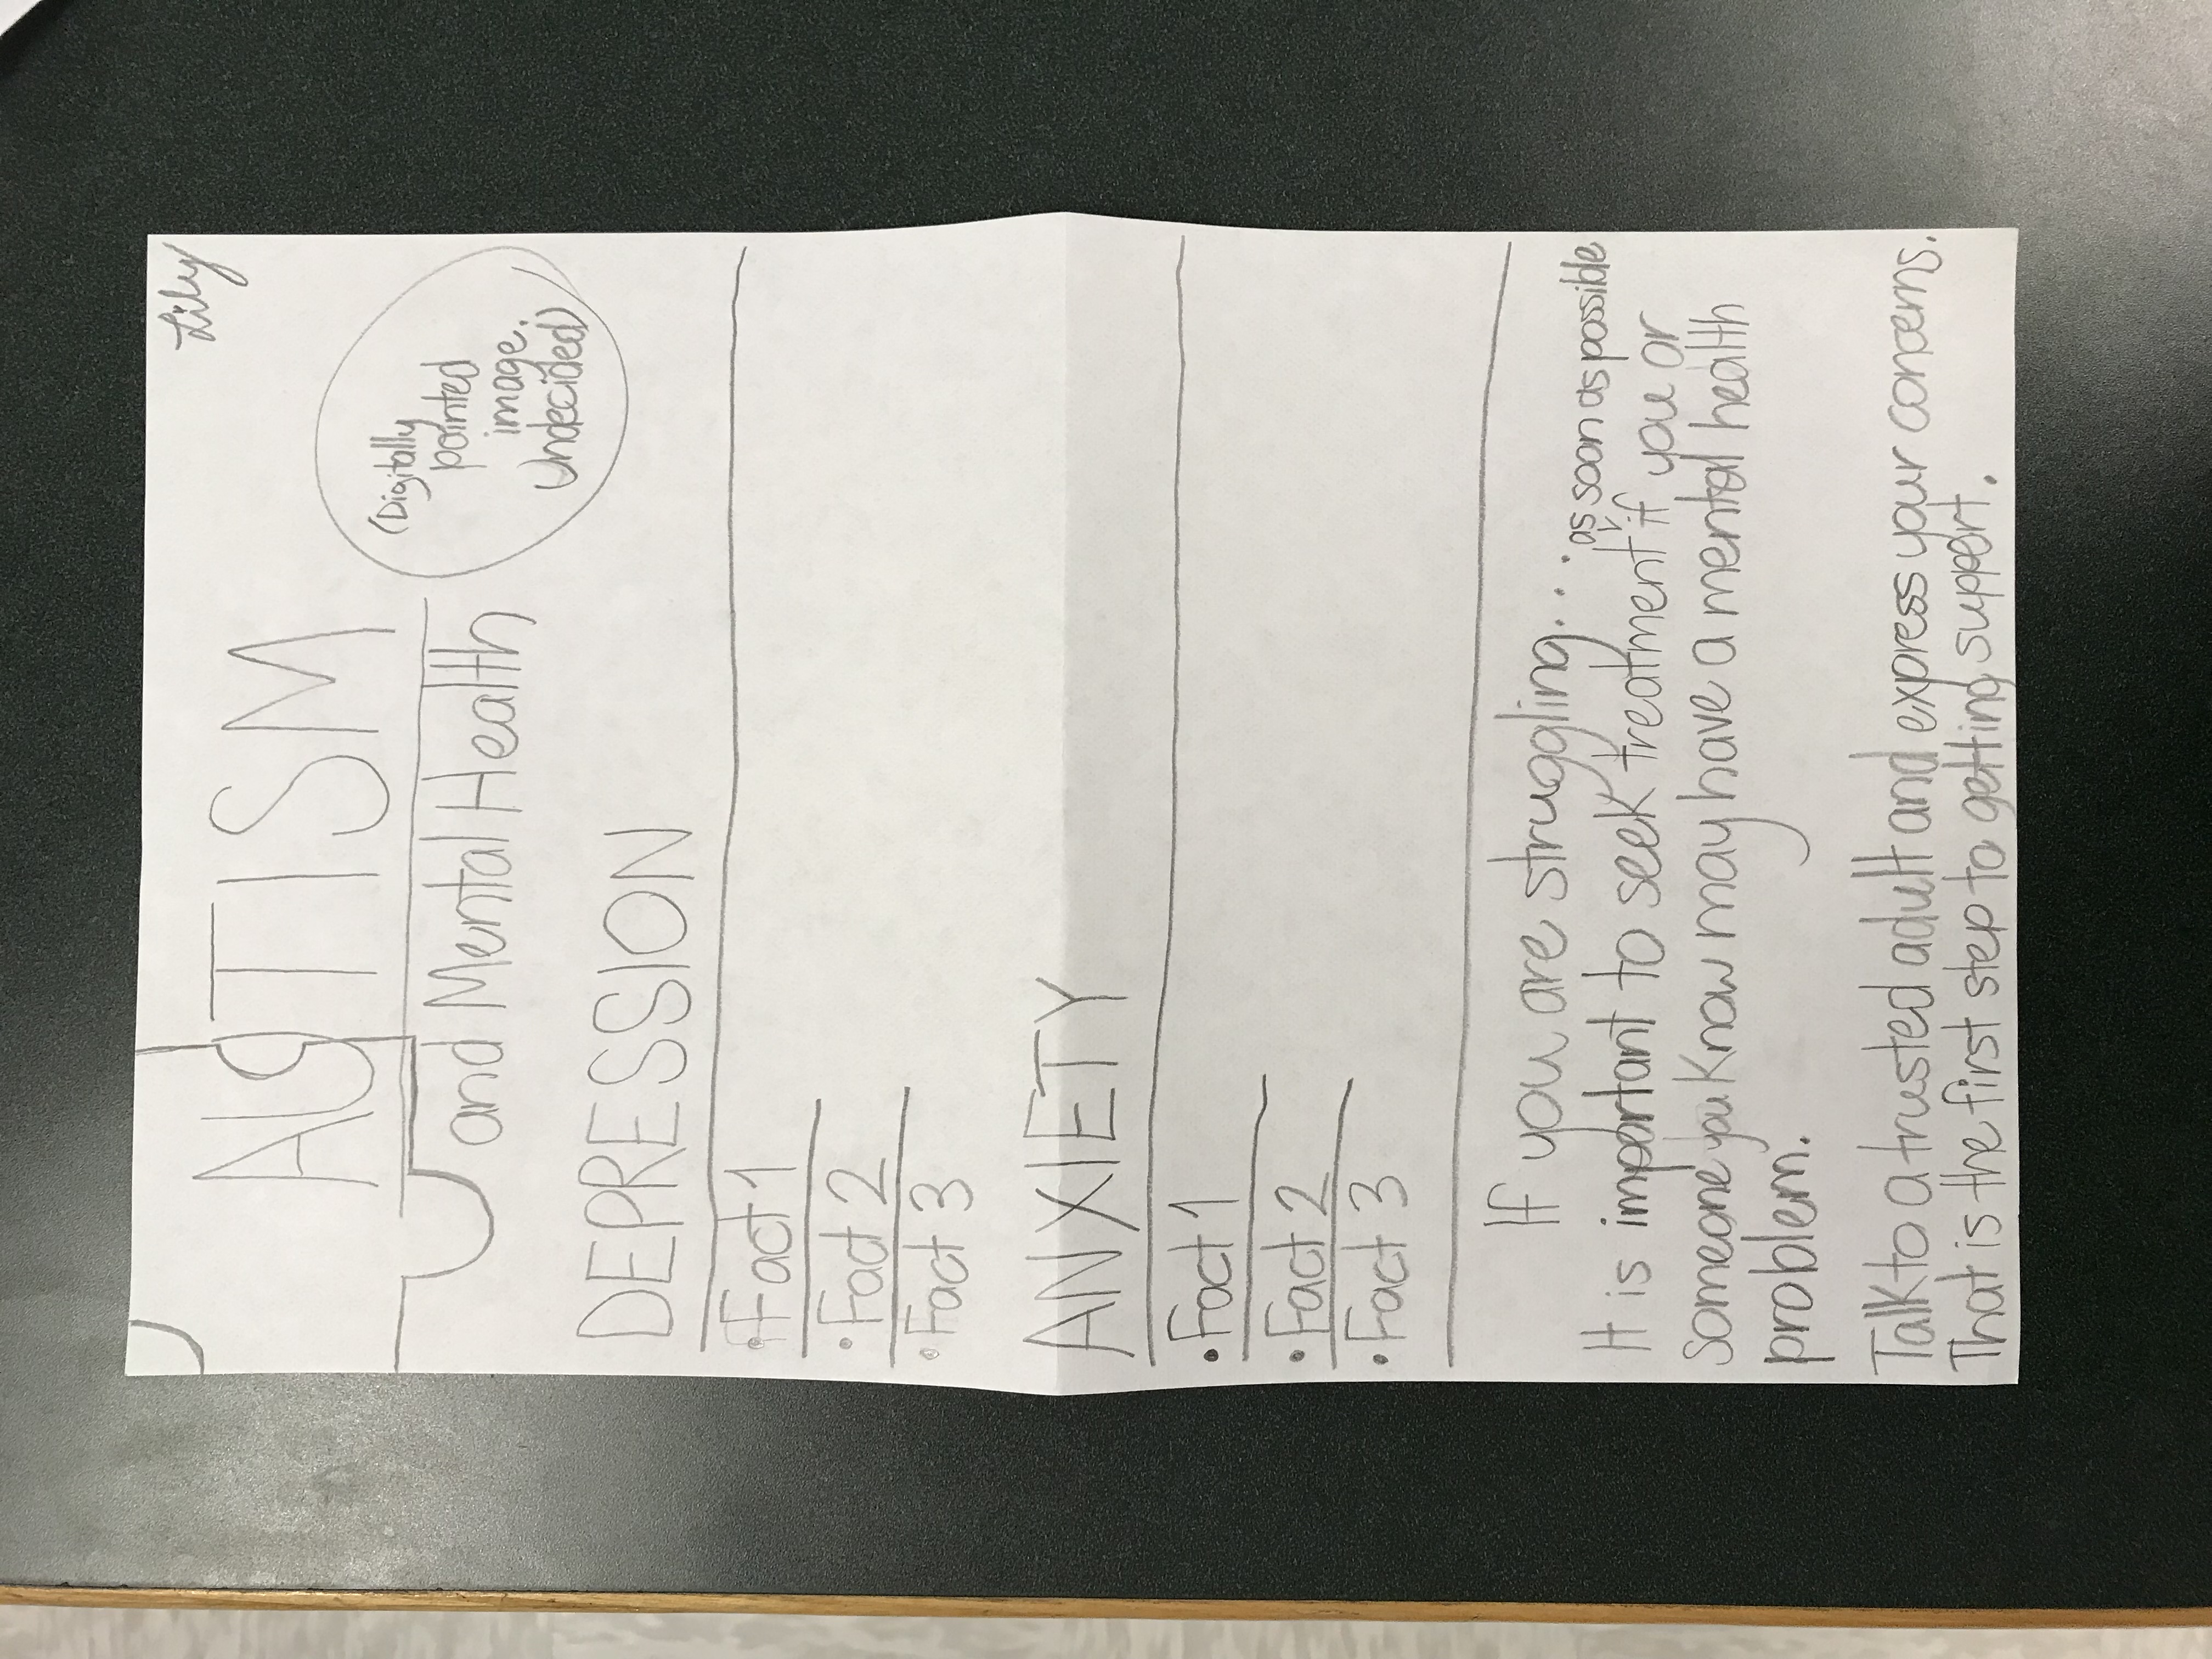 Lily
AUTISM
and Mental Health
(Digitally
painted
image.
Undecided)
DEPRESSION
• Fact 1
• Fact 2
• Fact 3
ANXIETY
• Fact 1
• Fact 2
• Fact 3
If you are struggling...
as soon as possible
It is important to seek treatment if you or
someone you know may have a mental health
problem.
Talk to a trusted adult and express your concerns.
That is the first step to getting support.